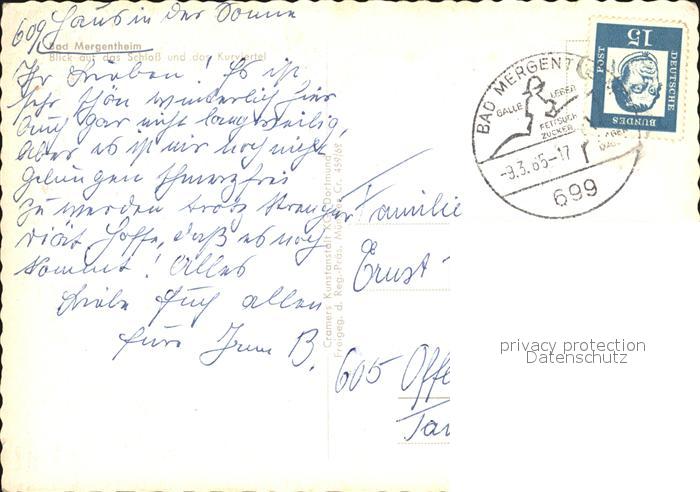 609 Haus in der Sonne
Bad Mergentheim
Blick auf das Schloß und das Kurviertel
Ihr Lieben! Es ist
sehr schön winterlich hier
auch gar nicht langweilig,
aber es ist mir noch nicht
gelungen schmerzfrei
zu werden trotz strenger
Diät. Hoffe, daß es noch
kommt! Alles
Liebe Euch allen
B.
Cramers Kunstanstalt KG, Dortmund
Freigeg. d. Reg.-Präs.
Familie
Ernst
605 Offe
BAD MERGENT
GALLE LEBER
ZUCKER
-9.3.65-17
699
15
DEUTSCHE
BUNDES
POST
privacy protection
Datenschutz